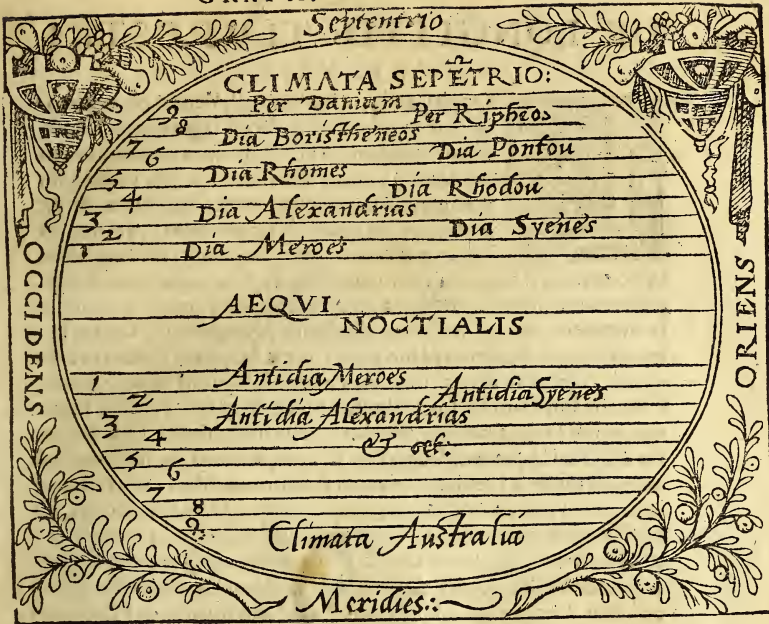 Septentrio
CLIMATA SEPĒTRIO:
Per Daniam
9 Per Ripheos
8 Dia Boristheneos
7 Dia Pontou
6
Dia Rhomes
5 Dia Rhodou
4
Dia Alexandrias
3 Dia Syenes
2
1 Dia Meroes
OCCIDENS
ORIENS
AEQVI
NOCTIALIS
1 Antidia Meroes
2 Antidia Syenes
3 Antidia Alexandrias
4
5
6
7
8
9
Climata Australia
Meridies::